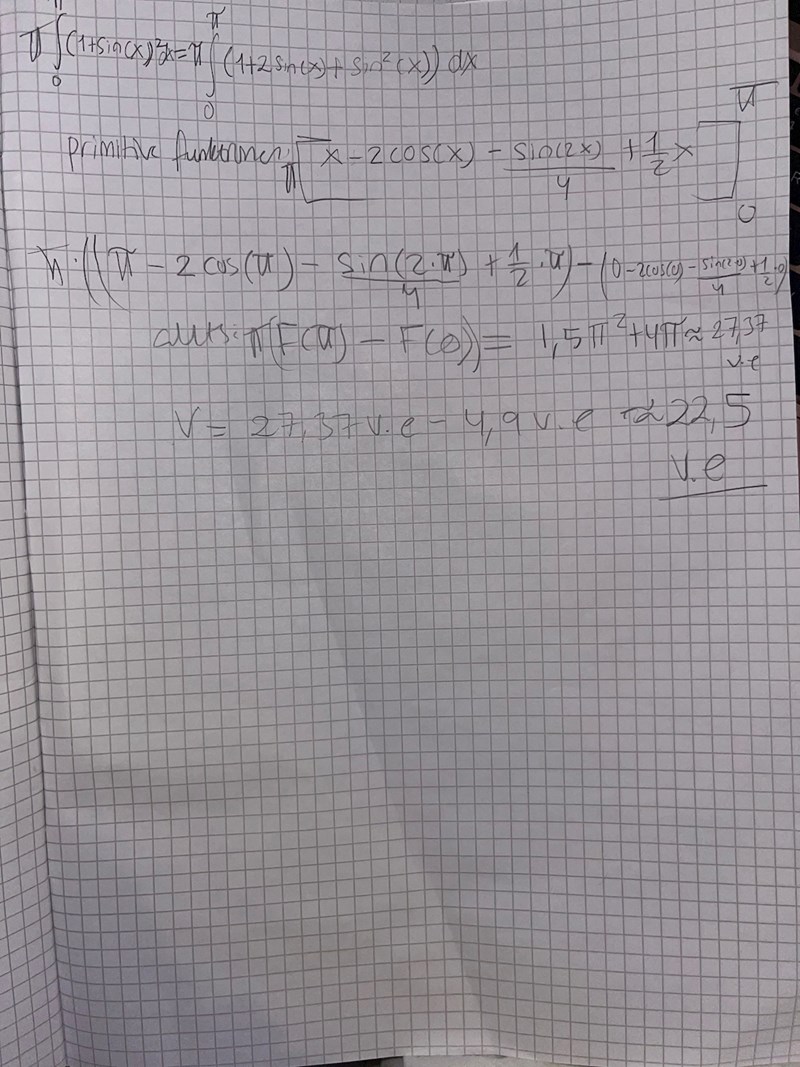 π∫₀^π (1+sin(x))²dx = π∫₀^π (1+2sin(x)+sin²(x)) dx
primitive funktionen: π[x-2cos(x) - sin(2x)/4 + 1/2 x]₀^π
π·((π - 2cos(π) - sin(2·π)/4 + 1/2·π) - (0-2cos(0) - sin(2·0)/4 + 1/2·0)
alltså: π(F(π) - F(0)) = 1,5π²+4π≈27,37 v.e
V = 27,37 v.e - 4,9 v.e ≈ 22,5
v.e